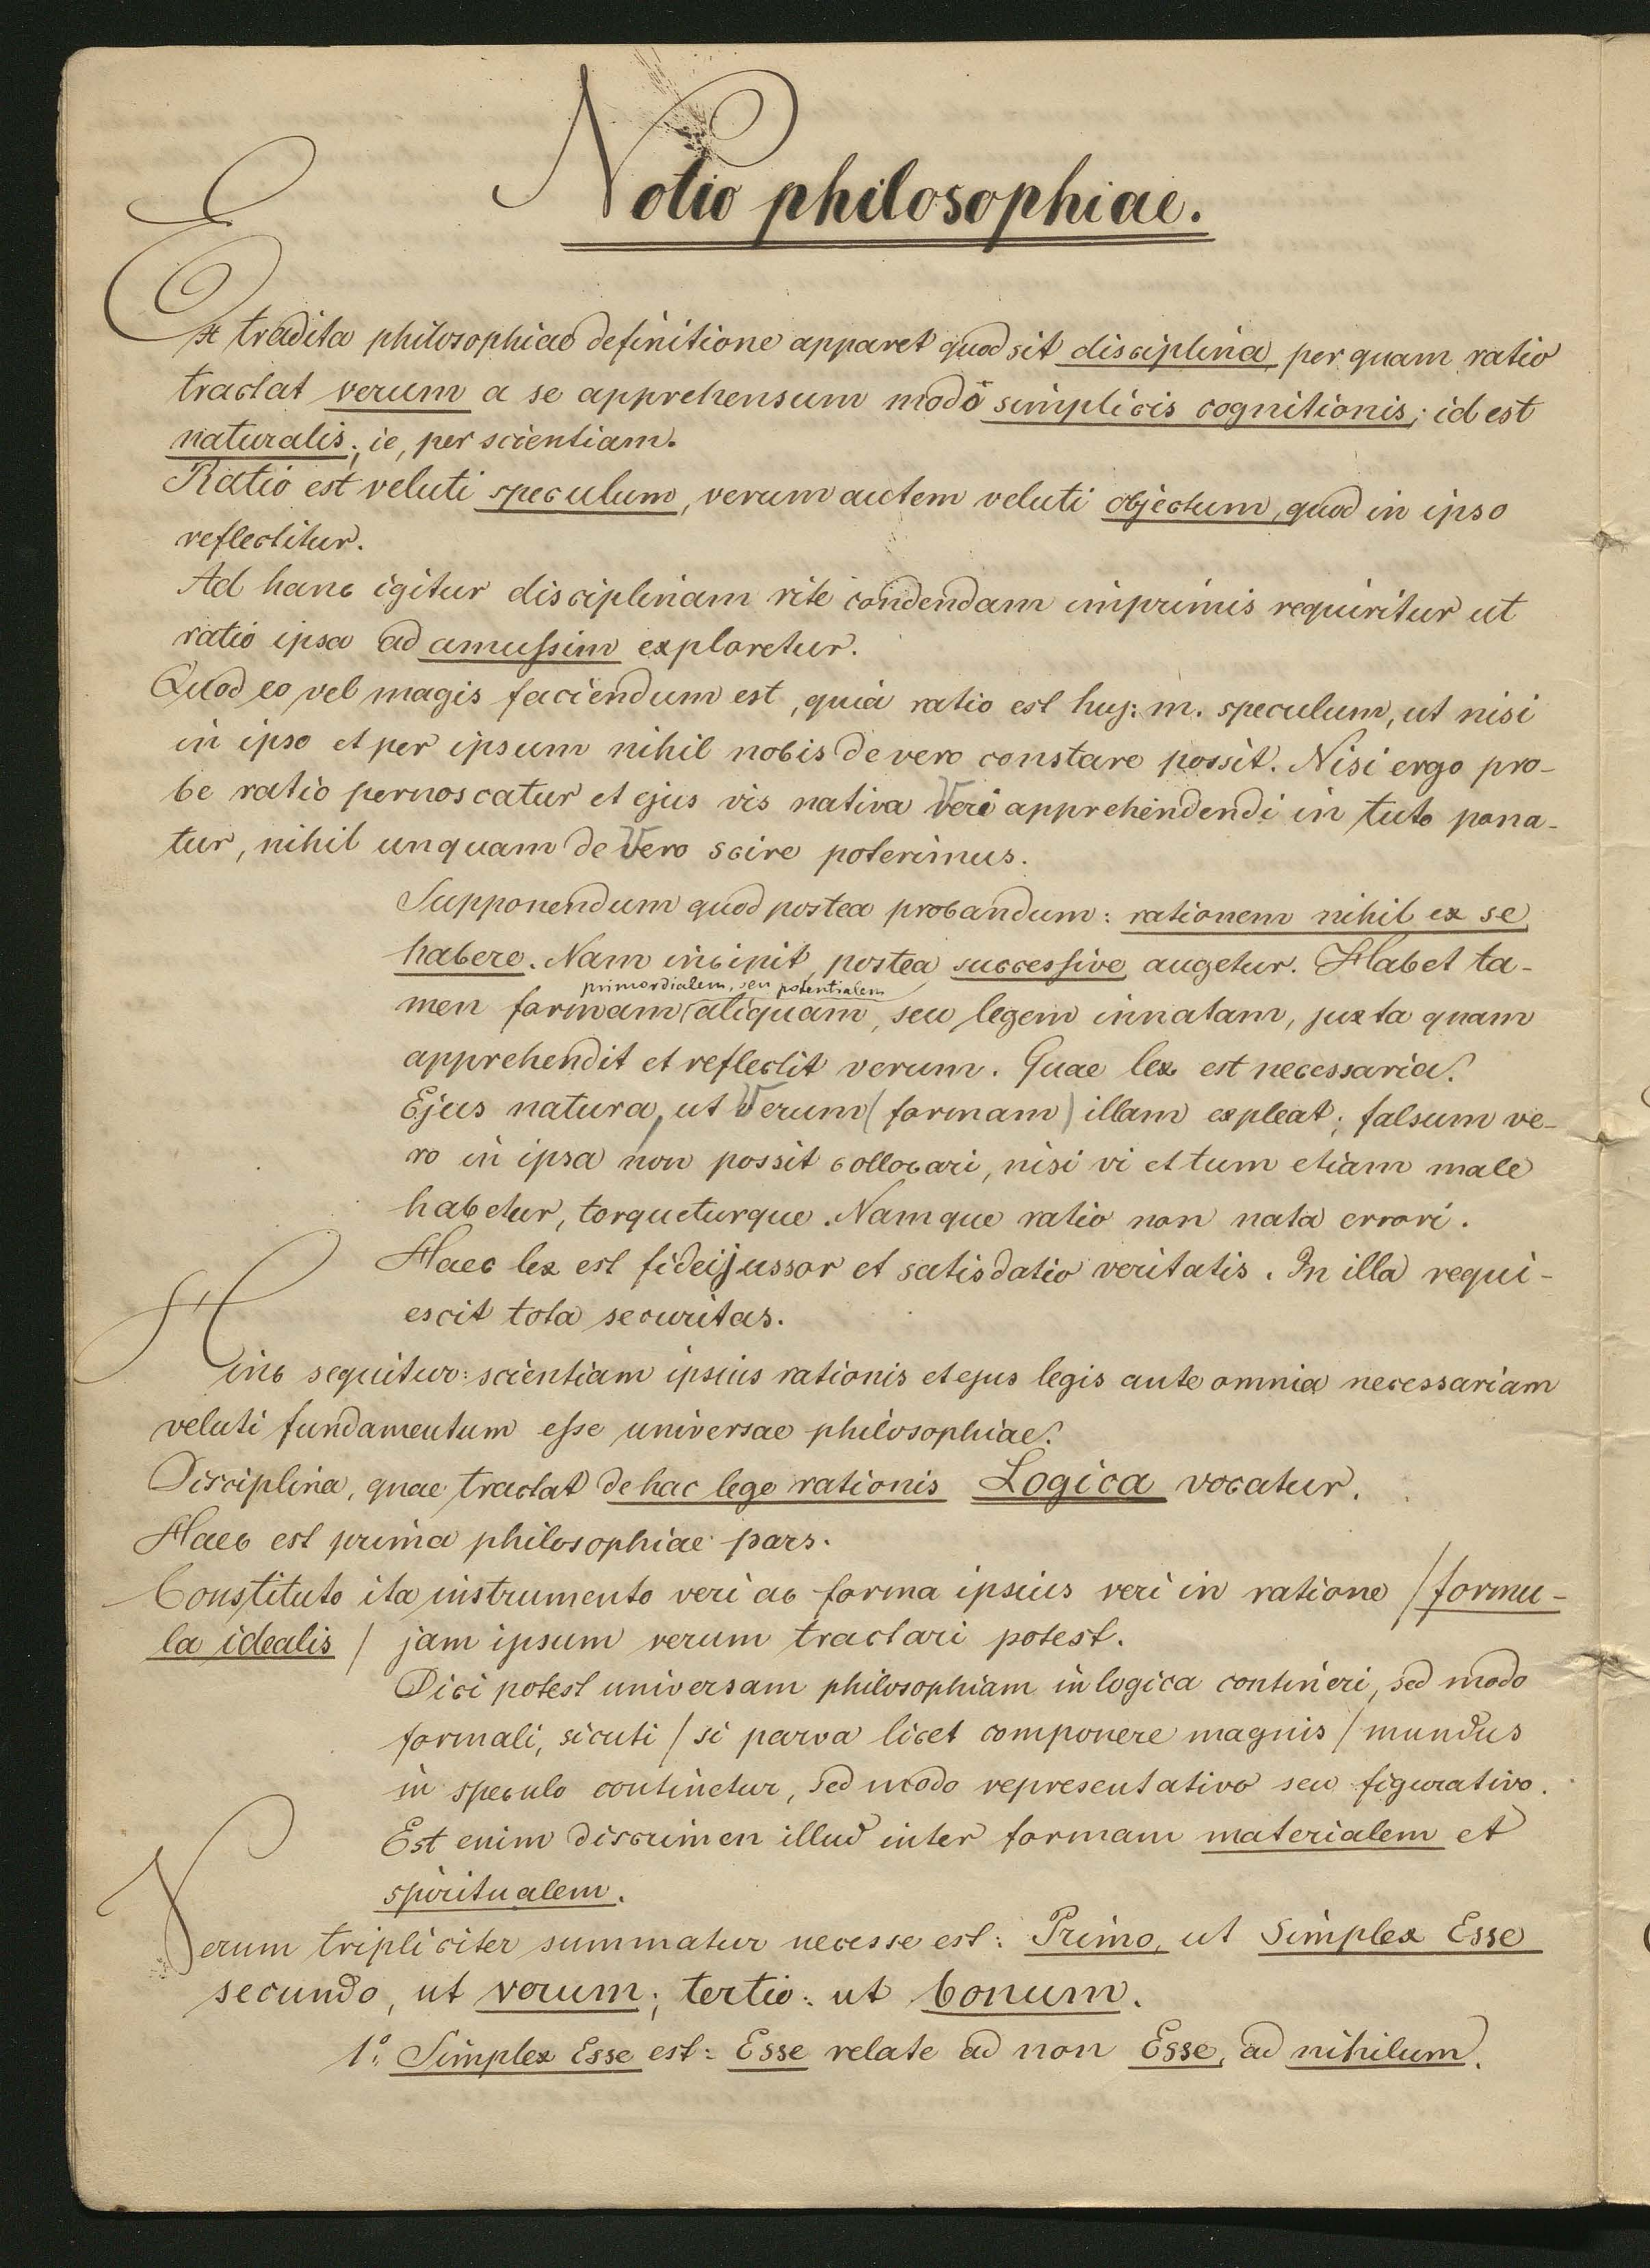 Notio philosophiae.
Ex tradita philosophiae definitione apparet quod sit disciplina per quam ratio
tractat verum a se apprehensum modo simplicis cognitionis; id est
naturalis; ie, per scientiam.
Ratio est veluti speculum, verum autem veluti objectum, quod in ipso
reflectitur.
Ad hanc igitur disciplinam rite condendam imprimis requiritur ut
ratio ipsa ad amussim exploretur.
Quod eo vel magis faciendum est, quia ratio est huj: m. speculum, ut nisi
in ipso et per ipsum nihil nobis de vero constare possit. Nisi ergo pro-
be ratio pernoscatur et ejus vis nativa Veri apprehendendi in tuto pona-
tur, nihil unquam de Vero scire poterimus.
Supponendum quod postea probandum: rationem nihil ex se
habere. Nam incipit, postea successive augetur. Habet ta-
primordialem, seu potentialem
men formam aliquam, seu legem innatam, juxta quam
apprehendit et reflectit verum. Quae lex est necessaria.
Ejus natura, ut Verum (formam) illam expleat; falsum ve-
ro in ipsa non possit collocari, nisi vi et tum etiam male
habetur, torqueturque. Namque ratio non nata errori.
Haec lex est fideijussor et satisdatio veritatis. In illa requi-
escit tota securitas.
Hinc sequitur: scientiam ipsius rationis et ejus legis ante omnia necessariam
veluti fundamentum esse universae philosophiae.
Disciplina, quae tractat de hac lege rationis Logica vocatur.
Haec est prima philosophiae pars.
Constituto ita instrumento veri ac forma ipsius veri in ratione /formu-
la idealis/ jam ipsum verum tractari potest.
Dici potest universam philosophiam in logica contineri, sed modo
formali, sicuti /si parva licet componere magnis/ mundus
in speculo continetur, sed modo representativo seu figurativo.
Est enim discrimen illud inter formam materialem et
spiritualem.
Verum tripliciter summatur necesse est: Primo, ut Simplex Esse
secundo, ut verum; tertio: ut bonum.
1o: Simplex Esse est: Esse relate ad non Esse, ad nihilum.